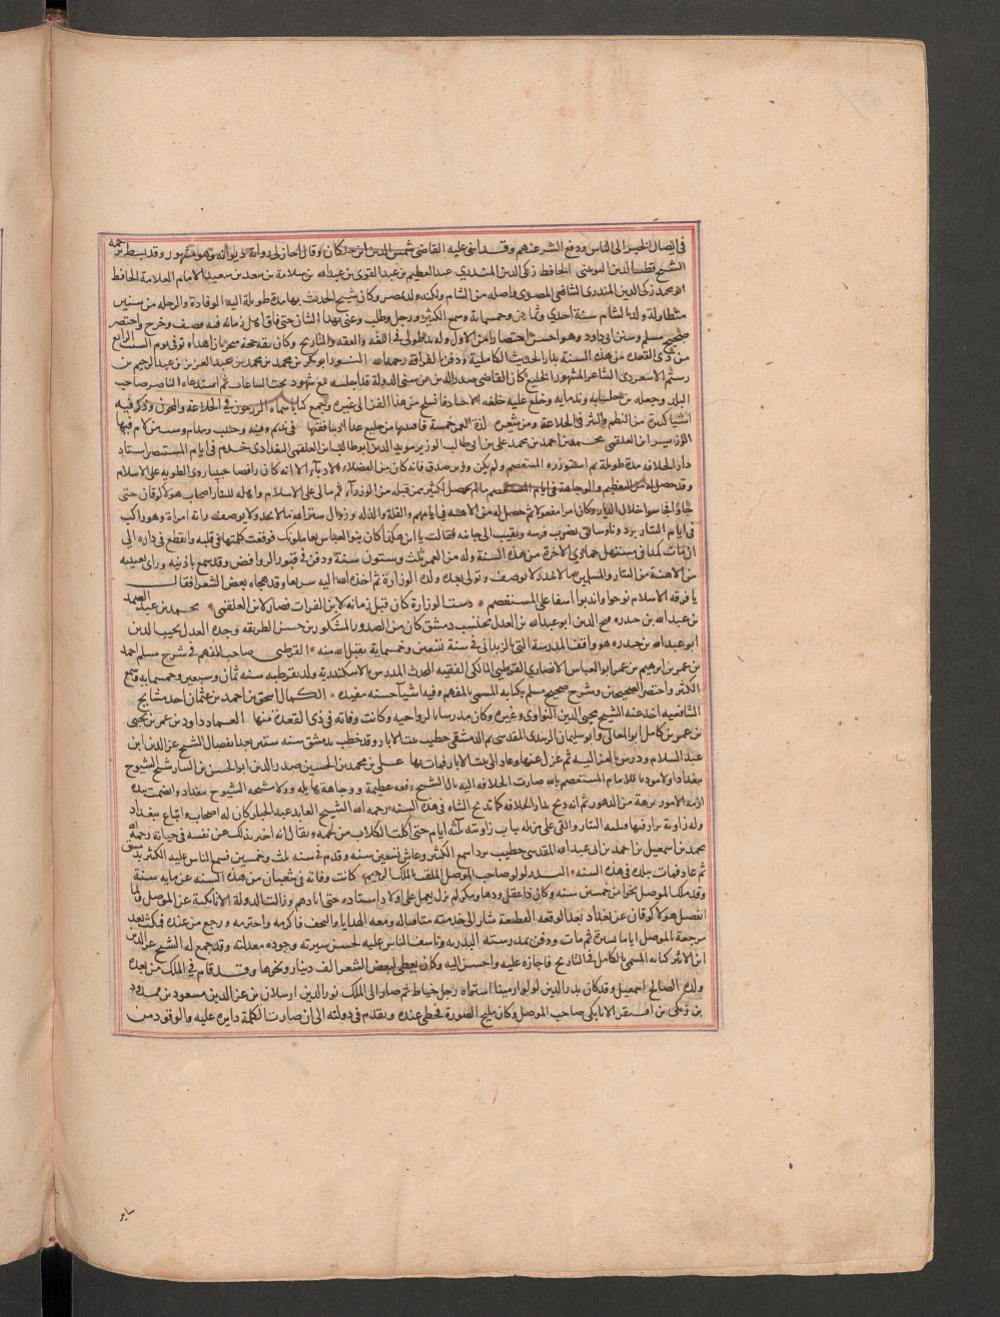 في ايصال الخير الى الناس ودفع الشر عنهم وقد اثنى عليه القاضي شمس الدين ابن خلكان وقال اجاز لي رواية ديوانه وهو مشهور وقد بسط ترجمته
الشيخ قطب الدين اليونيني الحافظ زكي الدين المنذري عبد العظيم بن عبد القوي بن عبد الله بن سلامة بن سعد بن سعيد الامام العلامة الحافظ
ابو محمد زكي الدين المنذري الشافعي المصري واصله من الشام ولكنه ولد بمصر وكان شيخ الحديث بها مدة طويلة اليه الوفادة والرحلة من سنين
متطاولة ولد بالشام سنة احدى وثمانين وخمسماية وسمع الكثير ورحل وطلب وعني بهذا الشان حتى فاق اهل زمانه فيه وصنف وخرج واختصر
صحيح مسلم وسنن ابي داود وهو احسن اختصارا من الاول وله يد طولى في اللغة والفقه والتاريخ وكان ثقة حجة متحريا زاهدا توفي يوم السبت الرابع
من ذي القعدة من هذه السنة بدار الحديث الكاملية ودفن بالقرافة رحمه الله النور ابو بكر بن محمد بن محمد بن عبد العزيز بن عبد الرحيم بن
رستم الاسعردي الشاعر المشهور الخليع كان القاضي صدر الدين بن سني الدولة قد اجلسه مع شهود تحت الساعات ثم استدعاه الناصر صاحب
البلد وجعله من جلسايه وندمايه وخلع عليه خلعة الاجناد فانسلخ من هذا الفن الى غيره وجمع كتابا سماه الزرجون في الخلاعة والمجون وذكر فيه
اشيا كثيرة من النظم والنثر في الخلاعة ومن شعره لذة العمر خمسة فاقتنيها من خليع غدا اديبا فقيها في نديم وقينة وحبيب ومدام وسب من لام فيها
الوزير ابن العلقمي محمد بن احمد بن محمد علي بن ابي طالب الوزير مويد الدين ابو طالب ابن العلقمي البغدادي خدم في ايام المستنصر استاد
دار الخلافة مدة طويلة ثم استوزره المستعصم ولم يكن وزير صدق فانه كان من الفضلاء الادباء الا انه كان رافضا خبيثا ردي الطوية على الاسلام
وقد حصل له من التعظيم والوجاهة في ايام المستعصم ما لم يحصل لكثير ممن قبله من الوزراء ثم مالى على الاسلام واهله للتتار اصحاب هولاكوقان حتى
جاوا فجاسوا خلال الديار وكان امرا مفعولا ثم حصل له من الاهنة في ايامهم والقلة والذلة وزوال ستر الله ما لا يحد ولا يوصف راته امراة وهو راكب
في ايام التتار برذونا وسايق يضرب فرسه فوقفت الى جانبه فقالت يا ابن هكذا كان بنو العباس يعاملونك فوقعت كلمتها في قلبه وانقطع في داره الى
ان مات كمدا في مستهل جمادي الاخرة من هذه السنة وله من العمر ثلث وستون سنة ودفن في قبور الروافض وقد سمع باذنيه وراى بعينيه
من الاهنة من التتار والمسلمين ما لا يحد ولا يوصف وتولى بعده ولده الوزارة ثم اخذه الله اليه سريعا وقد هجاه بعض الشعرا فقال
يا فرقة الاسلام نوحوا واندبوا اسفا على المستعصم دست الوزارة كان قبل زمانه لابن الفرات فصار لابن العلقمي محمد بن عبد الصمد
بن عبد الله بن حيدره فتح الدين ابو عبد الله بن العدل محتسب دمشق كان من الصدور المشكورين حسن الطريقه وجده العدل نجيب الدين
ابو عبد الله بن حيدره هو واقف المدرسة التي بالزبداني في سنة تسعين وخمسماية تقبل الله منه القرطبي صاحب المفهم في شرح مسلم احمد
بن عمر بن ابراهيم بن عمر ابو العباس الانصاري القرطبي المالكي الفقيه المحدث المدرس بالاسكندرية ولد بقرطبه سنه ثمان وسبعين وخمسمايه وسمع
الكثير واختصر الصحيحين وشرح صحيح مسلم بكتابه المسمى بالمفهم وفيه اشيا حسنه مفيدة الكمال اسحق بن احمد بن عثمان احد مشايخ
الشافعيه اخذ عنه الشيخ محيي الدين النواوي وغيره وكان مدرسا بالرواحيه وكانت وفاته في ذي القعدة منها العماد داود بن عمر بن يحيى
بن عمر بن كامل ابو المعالي وابو سليمان الزبيدي المقدسي ثم الدمشقي خطيب بيت الابار وقد خطب بدمشق ست سنين بعد انفصال الشيخ عز الدين ابن
عبد السلام ودرس بالغزاليه ثم عزل عنها وعاد الى بيت الابار فمات بها علي بن محمد بن الحسين صدر الدين ابو الحسن بن النيار شيخ الشيوخ
ببغداد وله مودبا للامام المستعصم بالله صارت الخلافه اليه نال الشيخ رفعه عظيمة ووجاهة هايله وولاه مشيخة الشيوخ ببغداد وانضمت بيده
ازمة الامور برهة من الدهور ثم انه ذبح بدار الخلافه كما تذبح الشاة في هذه السنة رحمه الله الشيخ العابد عبد الجبار كان له اصحاب واتباع ببغداد
وله زاوية يزار فيها قتله التتار والقي على مزبله بباب زاويته ثلثه ايام حتى اكلت الكلاب من لحمه ويقال انه اخبر بذلك عن نفسه في حياته رحمه الله
محمد بن اسمعيل بن احمد بن ابي عبد الله المقدسي خطيب بردا سمع الكثير وعاش تسعين سنه وقدم في سنه ثلث وخمسين فسمع الناس عليه الكثير بدمشق
ثم عاد فمات ببلده في هذه السنه البدر لولو صاحب الموصل الملقب بالملك الرحيم كانت وفاته في شعبان من هذه السنه عن مايه سنة
وقد ملك الموصل نحوا من خمسين سنه وكان ذا عقل ودها ومكر لم يزل يعمل على اولاد استاده حتى ابادهم وزالت الدولة الاتابكية عن الموصل ولما
انفصل هولاكوقان عن بغداد بعد الوقعه الفظيعة سار الى خدمته متاهبا له ومعه الهدايا والتحف فاكرمه واحترمه ورجع من عنده فمكث بعد
مرجعه بالموصل اياما يسيرة ثم مات ودفن بمدرسته البدريه وتاسف الناس عليه لحسن سيرته وجوده معدلته وقد جمع له الشيخ عز الدين
ابن الاثير كتابه المسمى بالكامل في التاريخ فاجازه عليه واحسن اليه وكان يعطي لبعض الشعرا الف دينار ونحوها وقد قام في الملك من بعده
ولده الصالح اسمعيل وقد كان بدر الدين لولو ارمينا استراه رجل خياط ثم صار الى الملك نور الدين ارسلان بن عز الدين مسعود بن مودود
بن زنكي بن اقسنقر الاتابكي صاحب الموصل وكان مليح الصورة فحظي عنده وتقدم في دولته الى ان صارت الكلمة دايرة عليه والوفود من
ساير